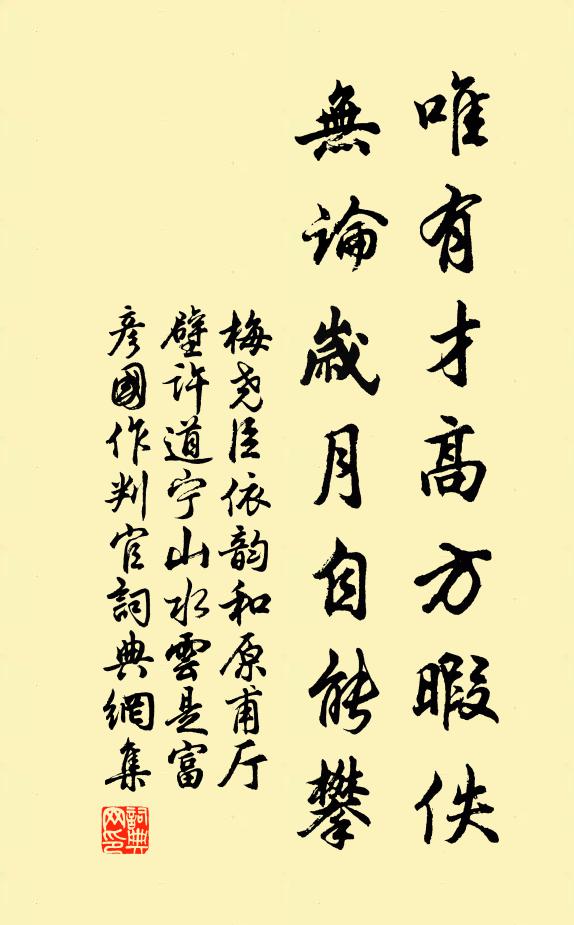 唯有才高方暇佚
無論歲月自能攀
梅尭臣依韵和原甫厅
壁许道宁山水雲是富
彦國作判官詞典網集
詞典网印